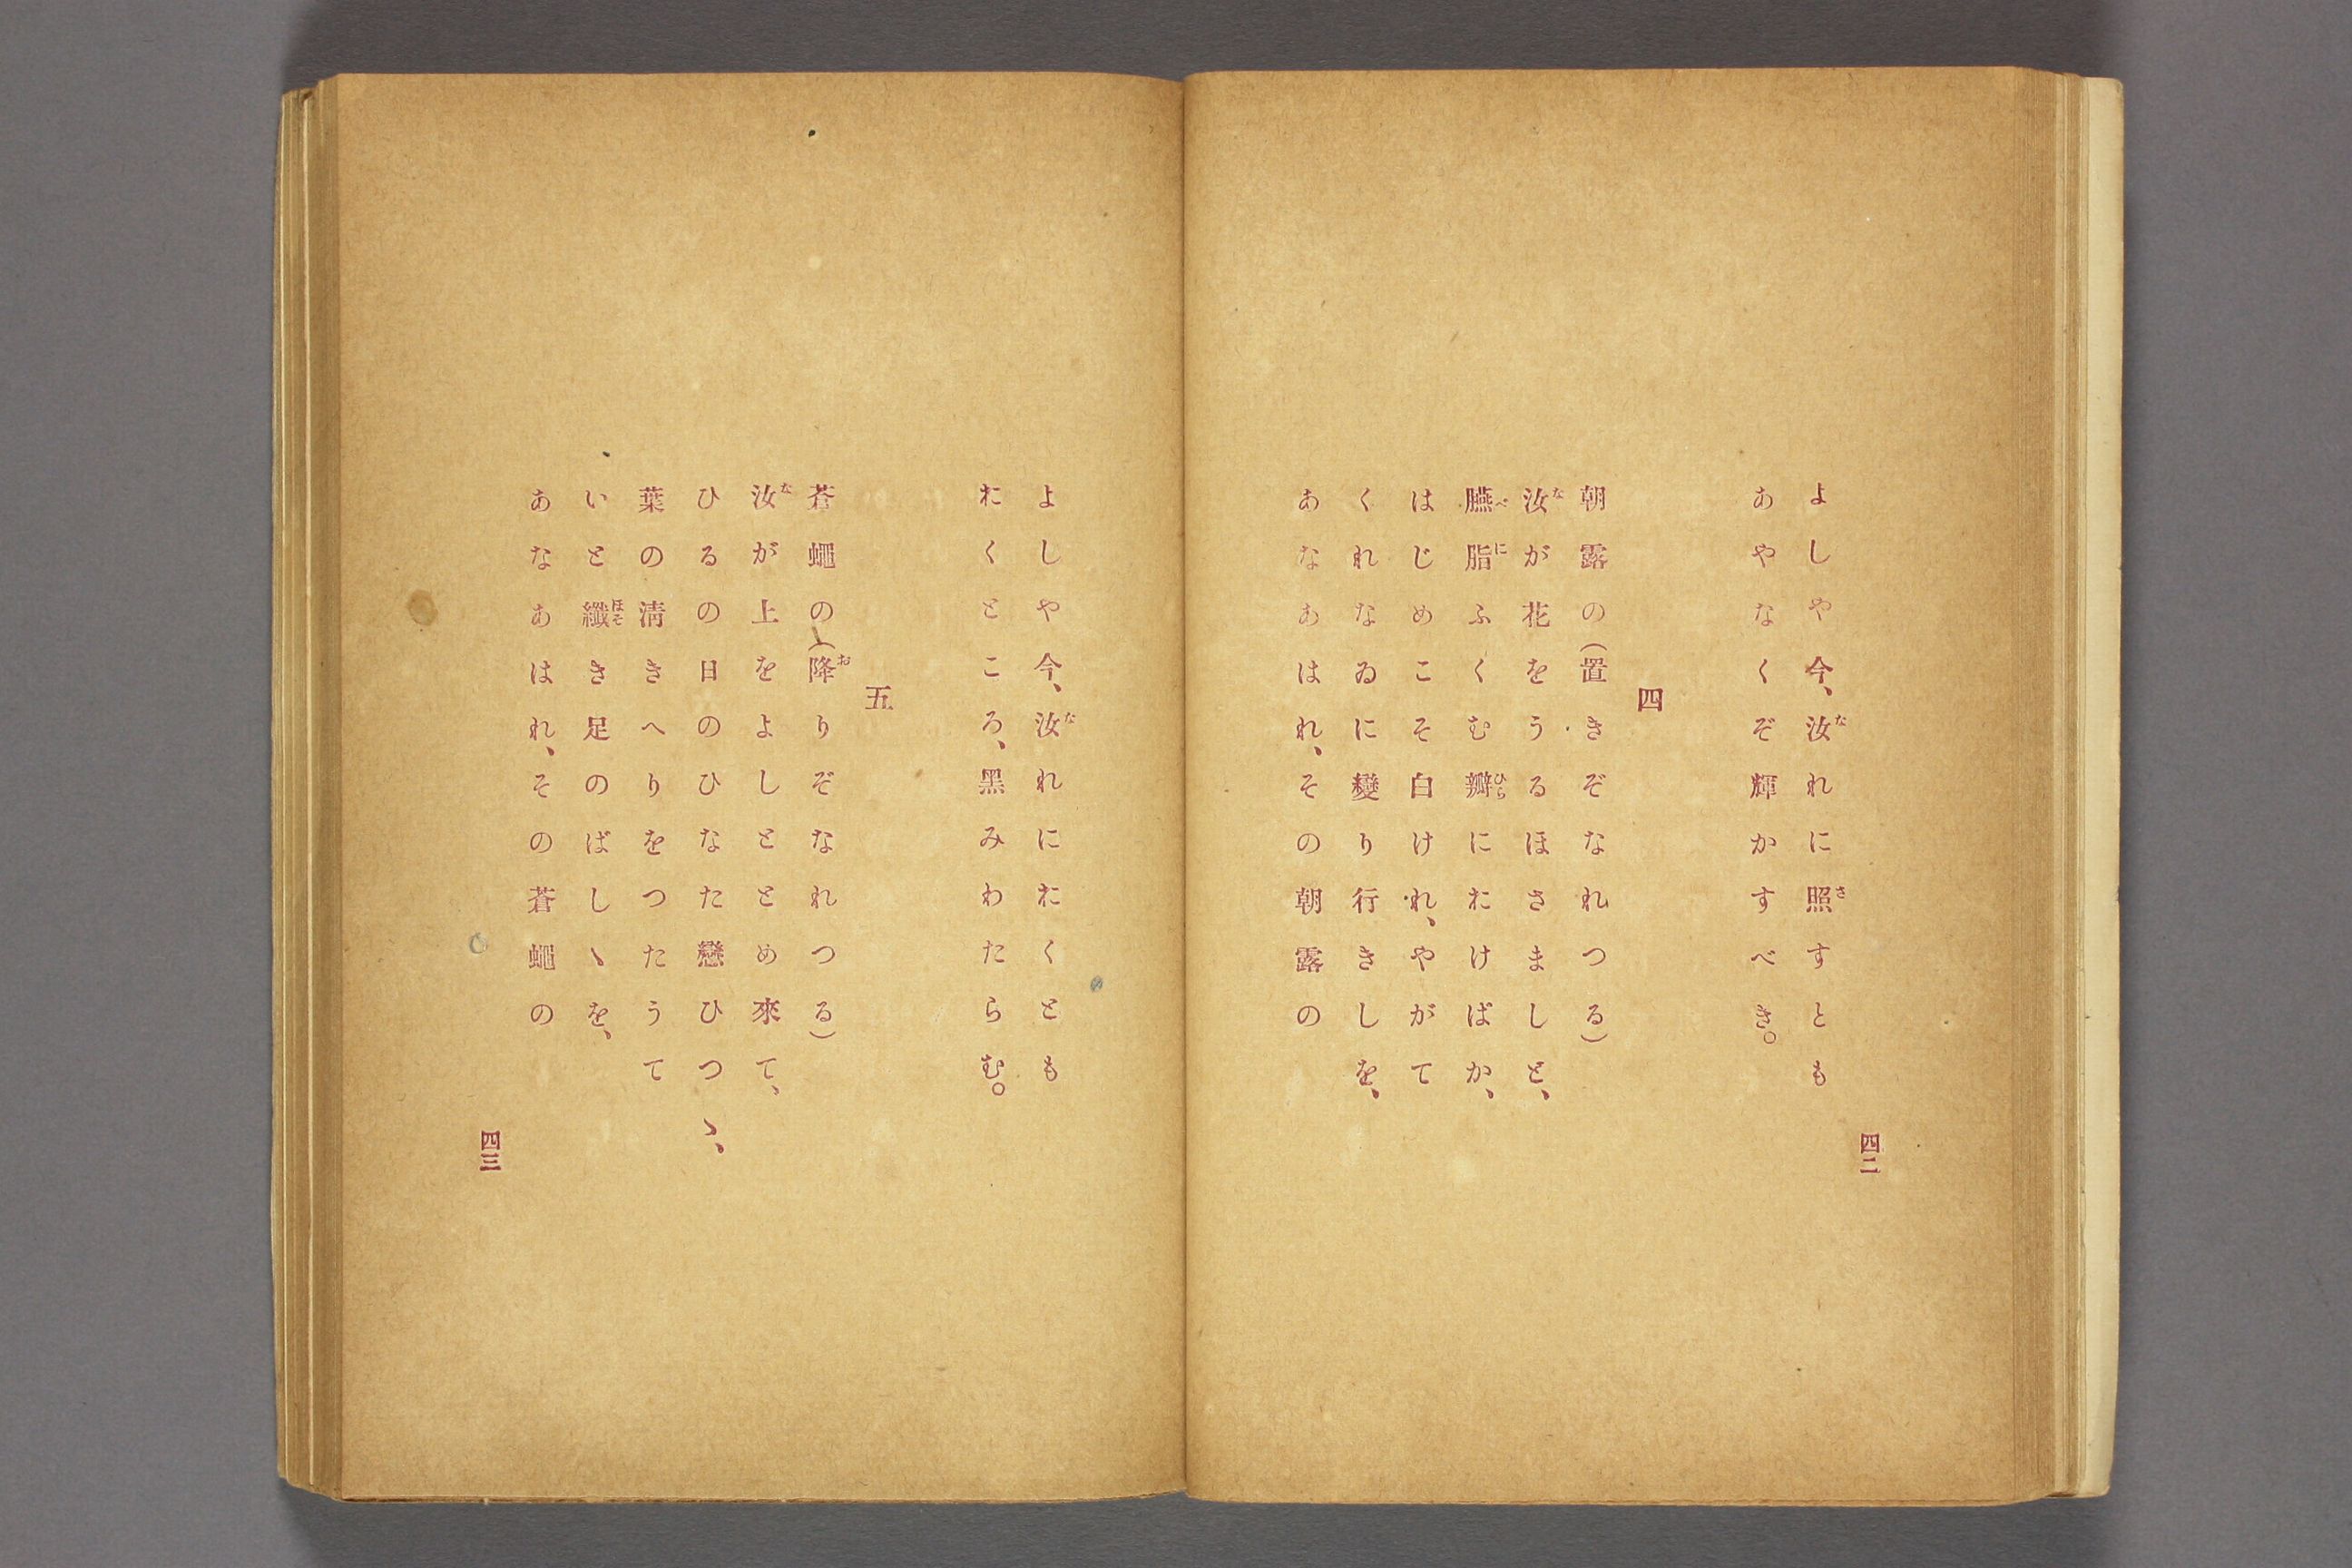 四二
よしや今、汝なれに照さすとも
あやなくぞ輝かすべき。
四
朝露の(置きぞなれつる)
汝なが花をうるほさましと、
臙べ脂にふくむ瓣ひらにおけばか、
はじめこそ白けれ、やがて
くれなゐに變り行きしを、
あなあはれ、その朝露の
よしや今、汝なれにおくとも
おくところ、黑みわたらむ。
五
蒼蠅の(降おりぞなれつる)
汝なが上をよしととめ來て、
ひるの日のひなた戀ひつゝ、
葉の淸きへりをつたうて
いと纖ほそき足のばしゝを、
あなあはれ、その蒼蠅の
四三